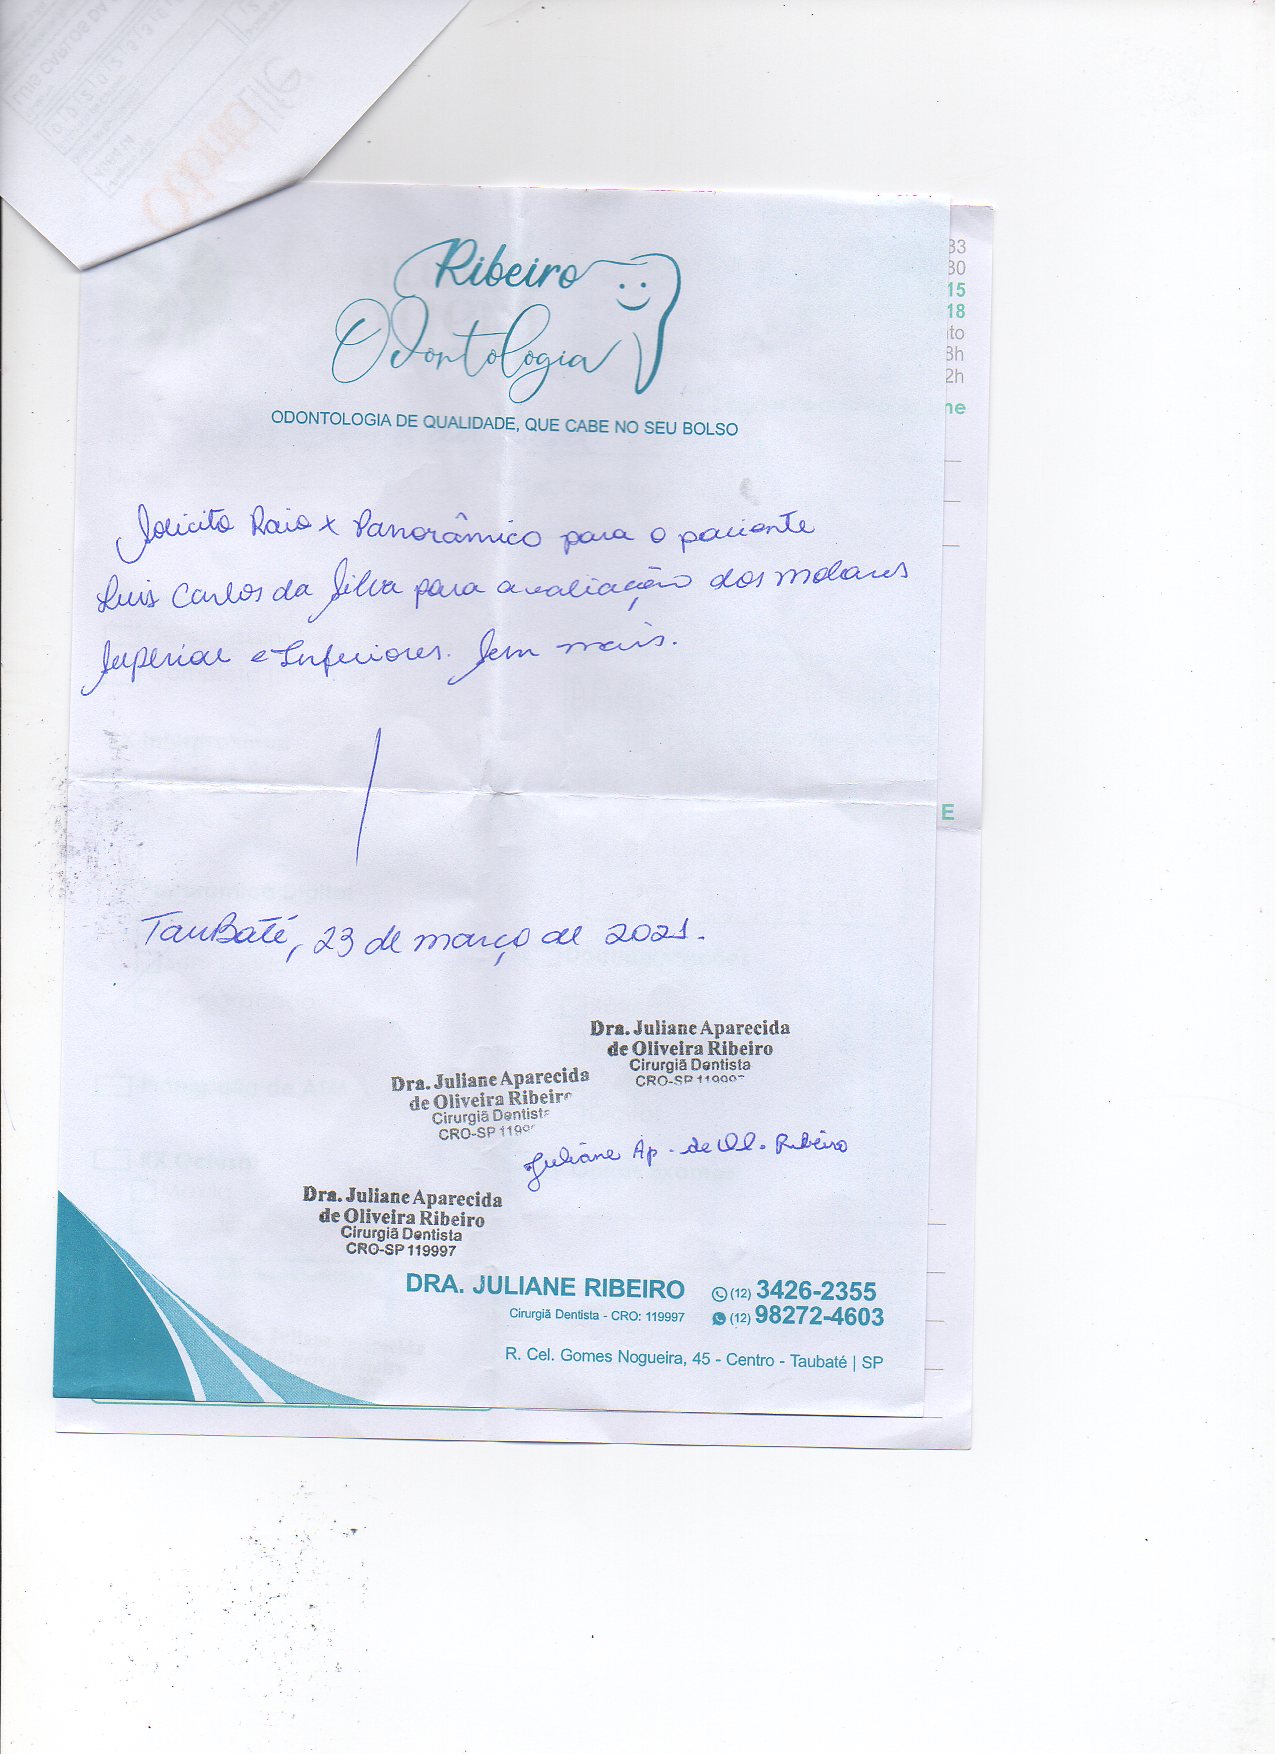 LUIS CARLOS DA
Odontolife
Ribeiro
Odontologia
ODONTOLOGIA DE QUALIDADE, QUE CABE NO SEU BOLSO
33
30
15
18
to
3h
2h
ne
Solicito Raio x Panorâmico para o paciente
Luis Carlos da Silva para avaliação dos molares
Superior e Inferiores. Sem mais.
E
TauBaté, 23 de março de 2021.
Dra. Juliane Aparecida
de Oliveira Ribeiro
Cirurgiã Dentista
CRO-SP 119997
Dra. Juliane Aparecida
de Oliveira Ribeir
Cirurgiã Dentist
CRO-SP 1199
Juliane Ap. de Ol. Ribeiro
Dra. Juliane Aparecida
de Oliveira Ribeiro
Cirurgiã Dentista
CRO-SP 119997
DRA. JULIANE RIBEIRO (12) 3426-2355
Cirurgiã Dentista - CRO: 119997 (12) 98272-4603
R. Cel. Gomes Nogueira, 45 - Centro - Taubaté | SP